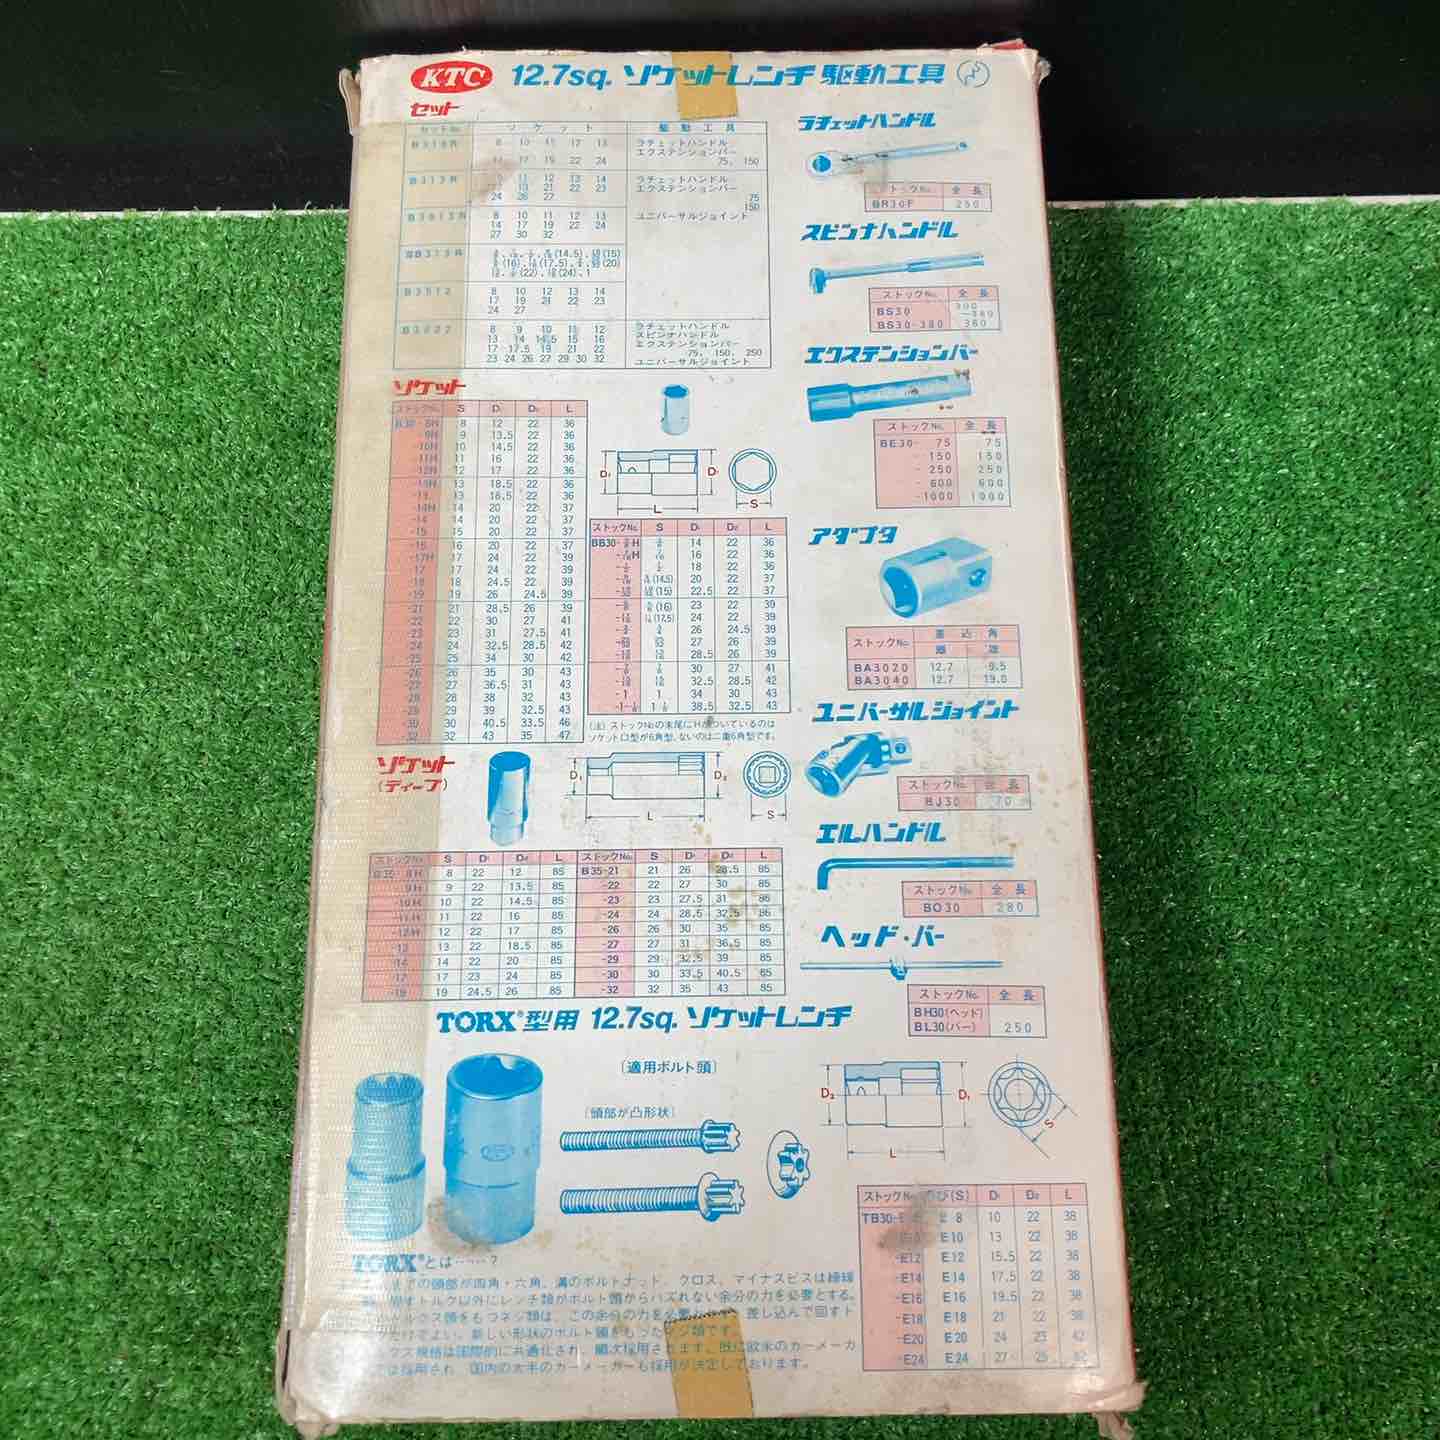 KTC 12.7sq. ソケットレンチ 駆動工具
セット
セットNo. ソケット 駆動工具
8 10 11 12 13 ラチェットハンドル
エクステンションバー
17 19 22 24 75, 150
B313R 11 12 13 14 ラチェットハンドル
21 22 23 エクステンションバー
24 26 27 75
150
8 10 11 12 13 ユニバーサルジョイント
14 17 19 22 24
27 30 32
B3512 8 10 12 13 14
17 19 21 22 23
24 27
8 9 10 11 12 ラチェットハンドル
13 14 14.5 15 16 スピンナハンドル
17 17.5 19 21 22 エクステンションバー
75, 150, 250
23 24 26 27 29 30 32 ユニバーサルジョイント
ソケット
ストックNo. S D₁ D₂ L
B30-8H 8 12 22 36
-9H 9 13.5 22 36
-10H 10 14.5 22 36
-11H 11 16 22 36
-12H 12 17 22 36
-13H 13 18.5 22 36
-13 13 18.5 22 36
-14H 14 20 22 37
-14 14 20 22 37
-15 15 20 22 37
-16 16 20 22 37
-17H 17 24 22 39
-17 17 24 22 39
-18 18 24.5 22 39
-19 19 26 24.5 39
-21 21 28.5 26 39
-22 22 30 27 41
-23 23 31 27.5 41
-24 24 32.5 28.5 42
-25 25 34 30 42
-26 26 35 30 43
-27 27 36.5 31 43
-28 28 38 32 43
-29 29 39 32.5 43
-30 30 40.5 33.5 46
-32 32 43 35 47
D₁ D₂
L S
ストックNo. S D₁ D₂ L
14 22 36
16 22 36
18 22 36
(14.5) 20 22 37
(15) 22.5 22 37
(16) 23 22 39
(17.5) 24 22 39
26 24.5 39
27 26 39
28.5 26 39
30 27 41
32.5 28.5 42
-1 1 34 30 43
38.5 32.5 43
(注) ストックNoの末尾にHがついているのは
ソケット口型が6角型、ないのは二重6角型です。
ソケット
(ディープ)
D₁ D₂
L S
ストックNo. S D₁ D₂ L
B35-8H 8 22 12 85
9H 9 22 13.5 85
-10H 10 22 14.5 85
-11H 11 22 16 85
-12H 12 22 17 85
-13 13 22 18.5 85
-14 14 22 20 85
-17 17 23 24 85
-19 19 24.5 26 85
ストックNo. S D₁ D₂ L
B35-21 21 26 28.5 85
-22 22 27 30 85
-23 23 27.5 31 85
-24 24 28.5 32.5 85
-26 26 30 35 85
-27 27 31 36.5 85
-29 29 32.5 39 85
-30 30 33.5 40.5 85
-32 32 35 43 85
ラチェットハンドル
ストックNo. 全長
BR30F 250
スピンナハンドル
ストックNo. 全長
BS30 300
-380
BS30-380 380
エクステンションバー
ストックNo. 全長
BE30- 75 75
-150 150
-250 250
-600 600
-1000 1000
アダプタ
ストックNo. 差込角
雌 雄
BA3020 12.7 9.5
BA3040 12.7 19.0
ユニバーサルジョイント
ストックNo. 全長
BJ30 70
エルハンドル
ストックNo. 全長
BO30 280
ヘッド・バー
ストックNo. 全長
BH30(ヘッド)
BL30(バー) 250
TORX®型用 12.7sq. ソケットレンチ
〔適用ボルト頭〕
〔頭部が凸形状〕
D₂ D₁
L S
ストックNo. (S) D₁ D₂ L
TB30- E8 10 22 38
E10 13 22 38
-E12 E12 15.5 22 38
-E14 E14 17.5 22 38
-E16 E16 19.5 22 38
-E18 E18 21 22 38
-E20 E20 24 23 42
-E24 E24 27 25 42
TORX®とは……?
での頭部が四角・六角、溝のボルトナット、クロス、マイナスビスは締緩
回すトルク以外にレンチ類がボルト頭からハズれない余分の力を必要とする。
ルクス頭をもつネジ類は、この余分の力を必要とせず、差し込んで回すト
だけでよい、新しい形状のボルト頭をもったネジ類です。
クス規格は国際的に共通化され、順次採用されます。既に欧米のカーメーカ
は採用され、国内の大半のカーメーカーも採用が決定しております。